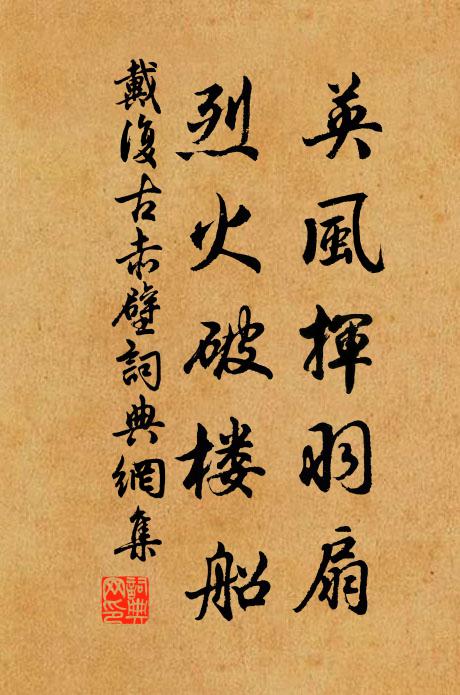 英風揮羽扇
烈火破楼船
戴復古赤壁詞典網集
詞典网印